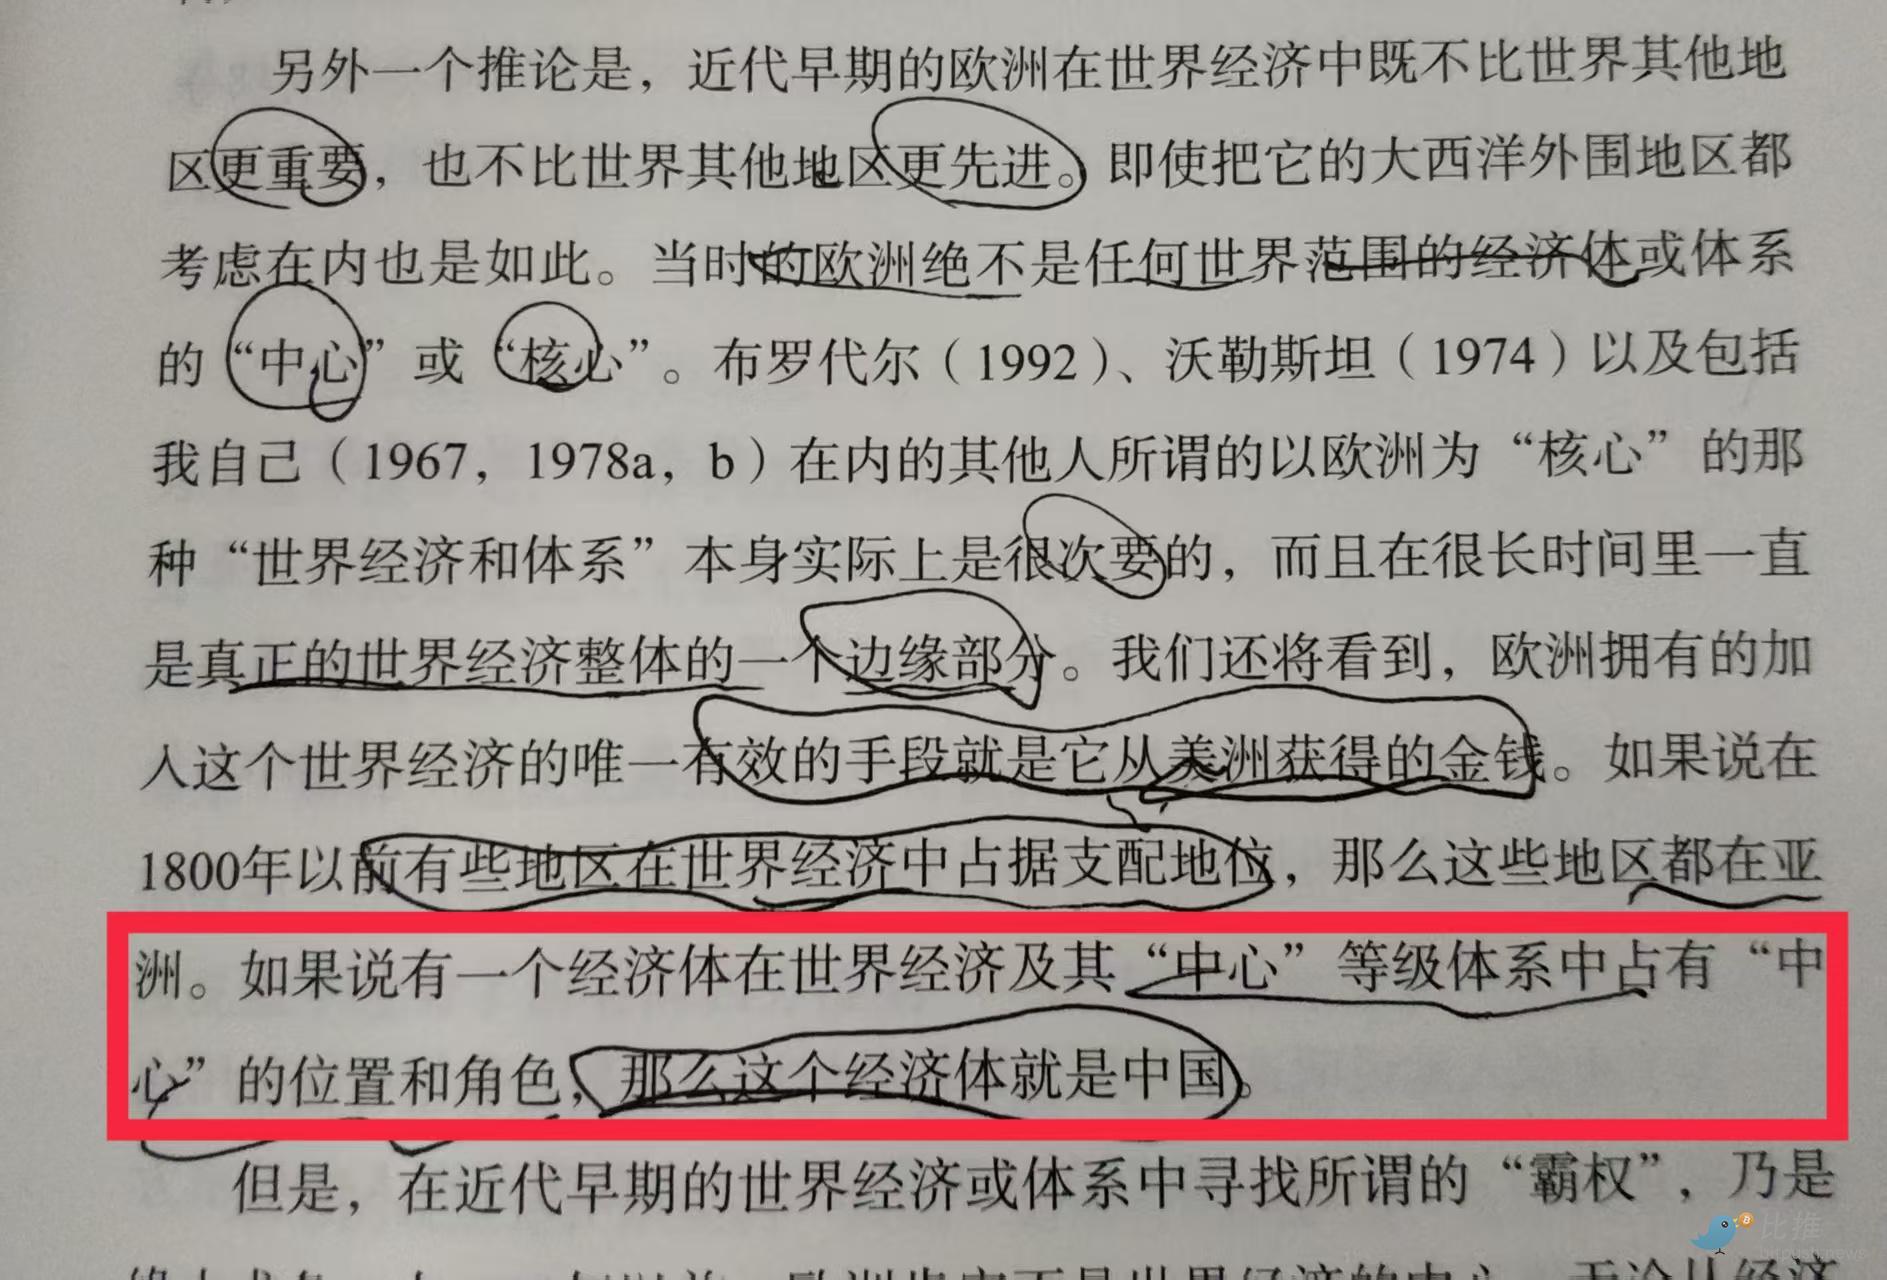 另外一个推论是，近代早期的欧洲在世界经济中既不比世界其他地
区更重要，也不比世界其他地区更先进。即使把它的大西洋外围地区都
考虑在内也是如此。当时的欧洲绝不是任何世界范围的经济体或体系
的“中心”或“核心”。布罗代尔（1992）、沃勒斯坦（1974）以及包括
我自己（1967，1978a，b）在内的其他人所谓的以欧洲为“核心”的那
种“世界经济和体系”本身实际上是很次要的，而且在很长时间里一直
是真正的世界经济整体的一个边缘部分。我们还将看到，欧洲拥有的加
入这个世界经济的唯一有效的手段就是它从美洲获得的金钱。如果说在
1800年以前有些地区在世界经济中占据支配地位，那么这些地区都在亚
洲。如果说有一个经济体在世界经济及其“中心”等级体系中占有“中
心”的位置和角色，那么这个经济体就是中国。
但是，在近代早期的世界经济或体系中寻找所谓的“霸权”，乃是
比推
bitpush.news